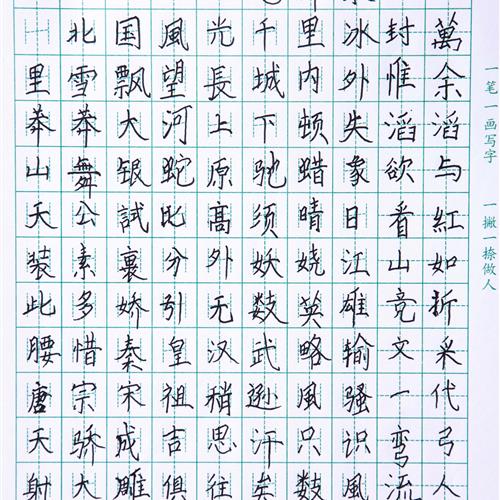 北国風光千里冰封萬
里雪飄望長城内外惟余
莽莽大河上下顿失滔滔
山舞银蛇原驰蜡象欲与
天公試比高须晴日看紅
装素裹分外妖娆江山如
此多娇引无数英雄竞折
腰惜秦皇汉武略输文采
唐宗宋祖稍逊風骚一代
天骄成吉思汗只识弯弓
射大雕俱往矣数風流人
一笔一画写字 一撇一捺做人